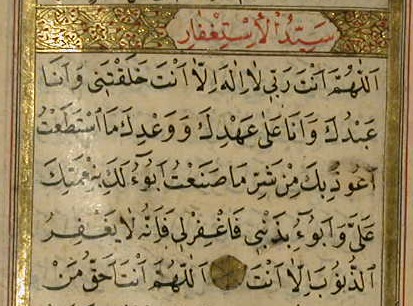 سَيِّدُ الْاِسْتِغْفَارِ
اَللّٰهُمَّ اَنْتَ رَبِّي لَا اِلٰهَ اِلَّا اَنْتَ خَلَقْتَنِي وَاَنَا
عَبْدُكَ وَاَنَا عَلٰى عَهْدِكَ وَوَعْدِكَ مَا اسْتَطَعْتُ
اَعُوذُ بِكَ مِنْ شَرِّ مَا صَنَعْتُ اَبُوءُ لَكَ بِنِعْمَتِكَ
عَلَيَّ وَاَبُوءُ بِذَنْبِي فَاغْفِرْ لِي فَاِنَّهُ لَا يَغْفِرُ
الذُّنُوبَ اِلَّا اَنْتَ اَللّٰهُمَّ اَنْتَ اَحَقُّ مَنْ